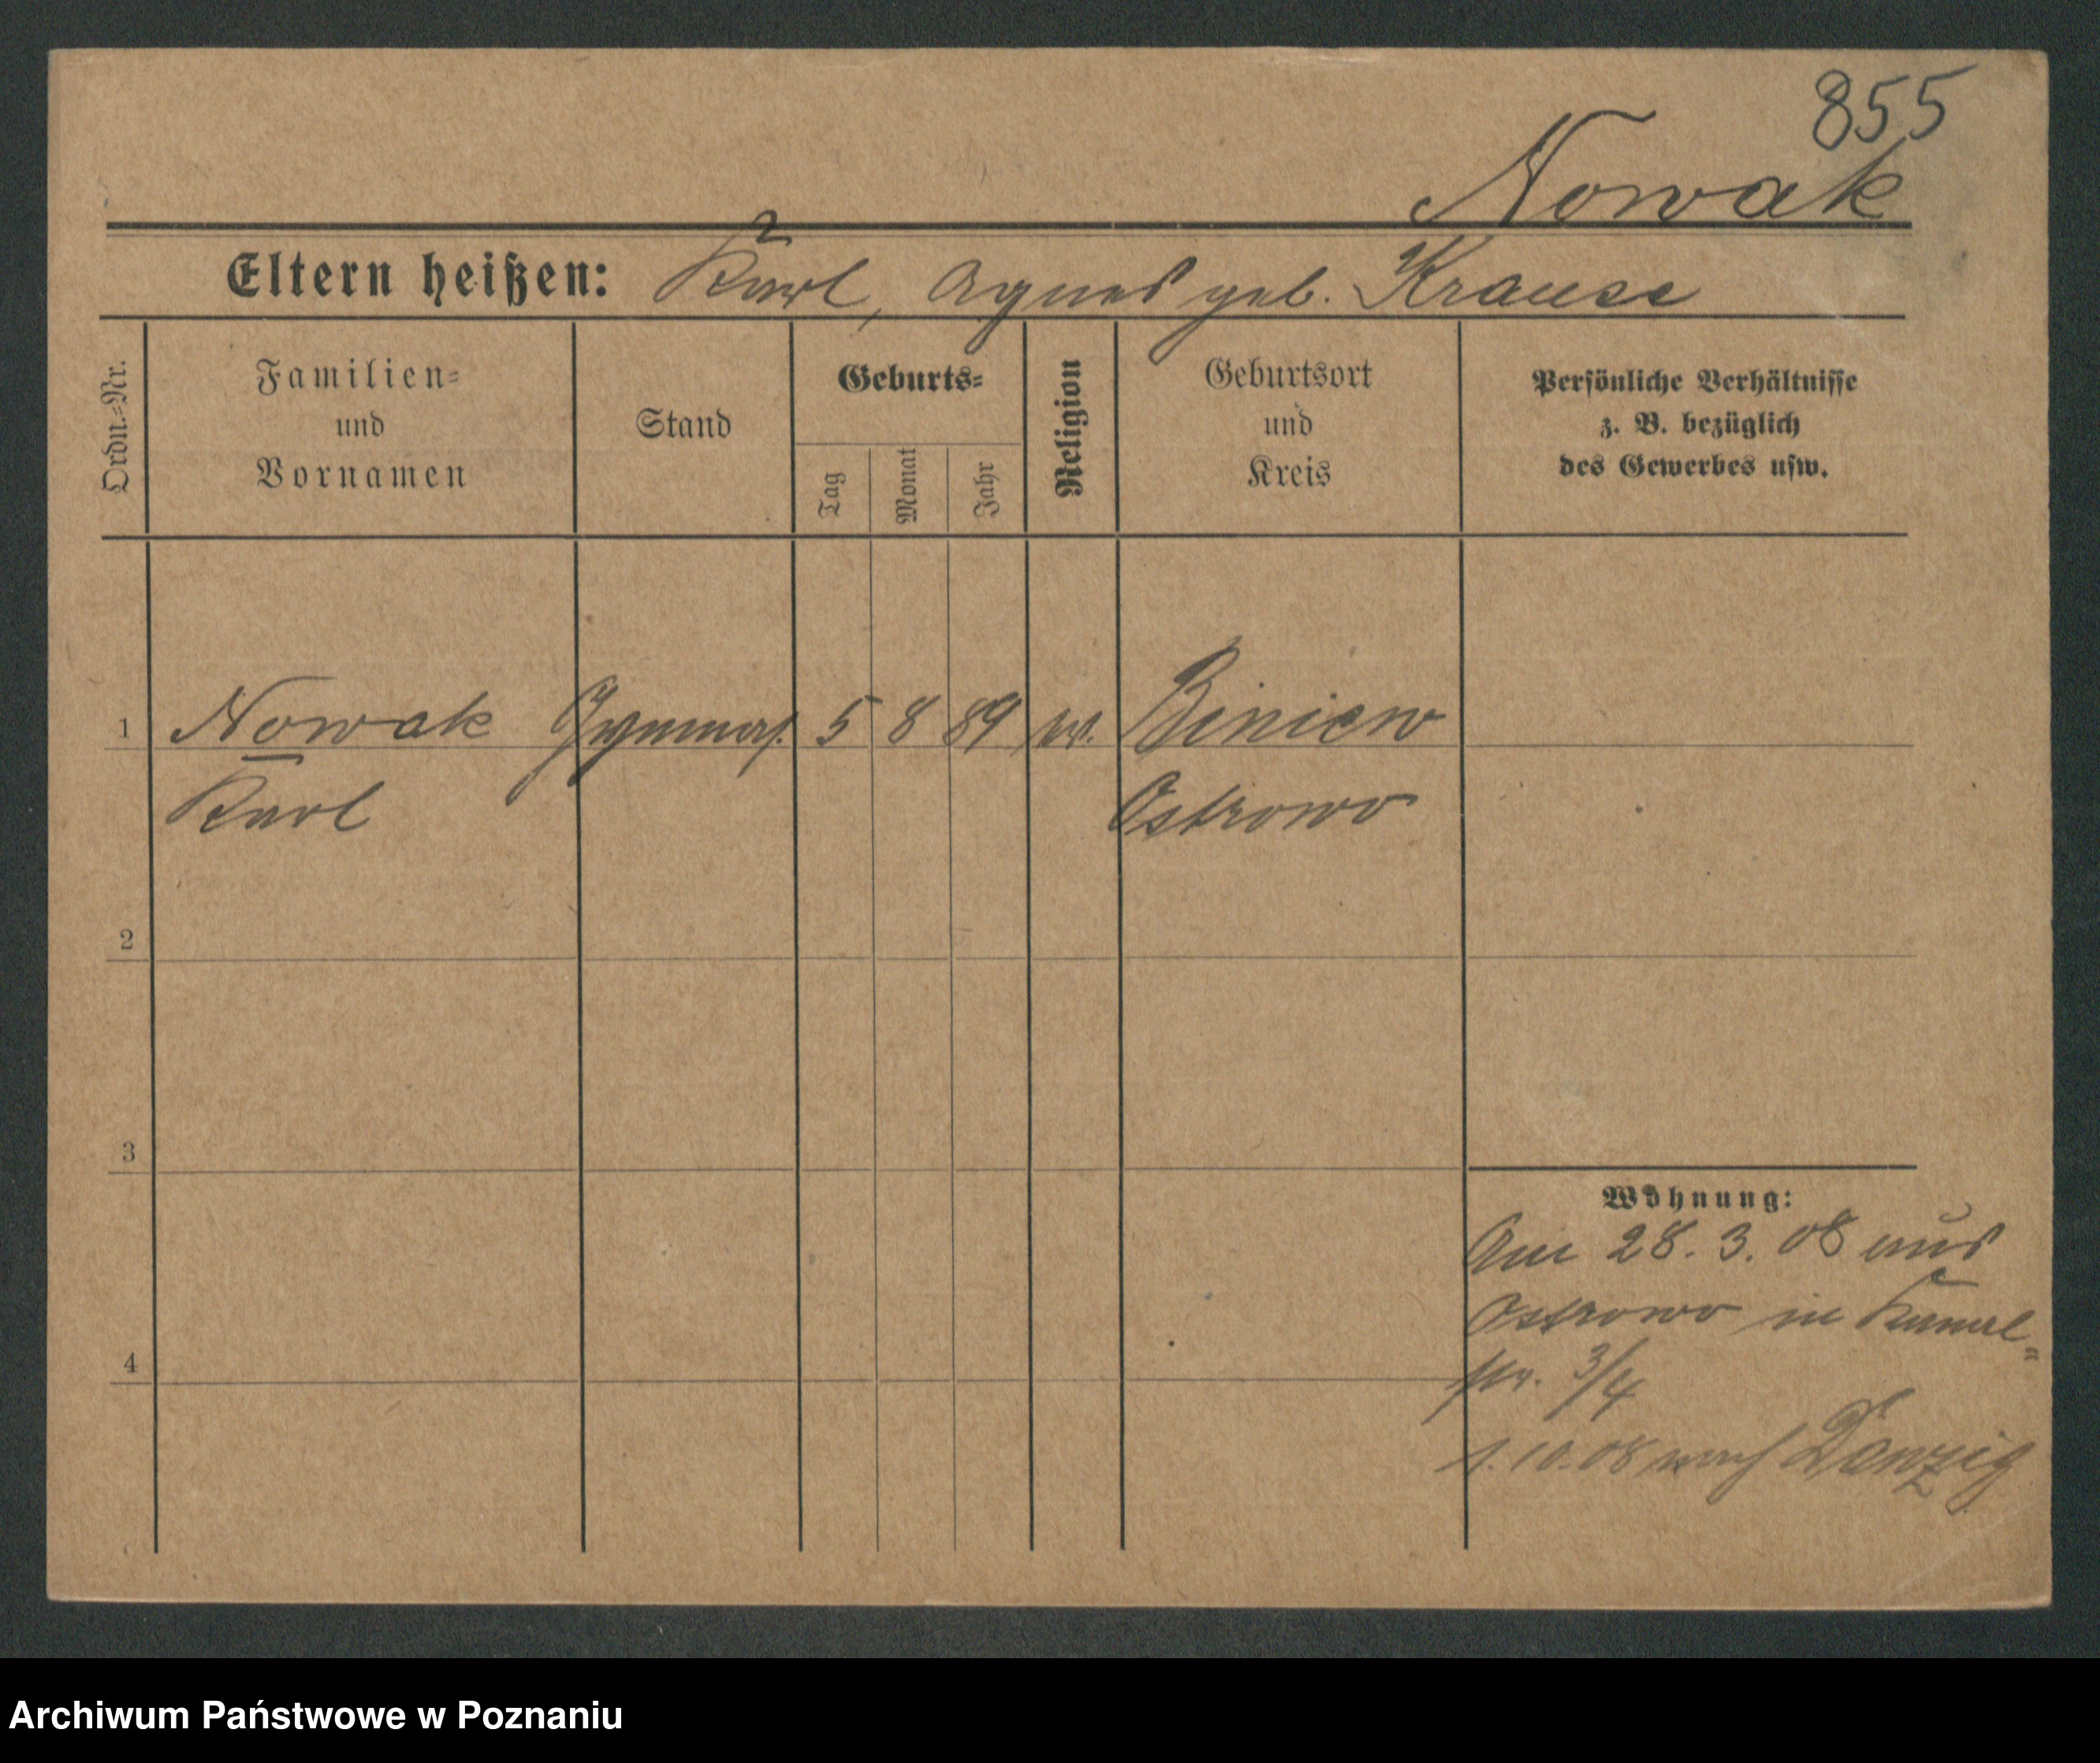 855
Nowak
Eltern heißen: Karl, Agnes geb. Krause
Ordn.=Nr.
Familien=
und
Vornamen
Stand
Geburts=
Tag
Monat
Jahr
Religion
Geburtsort
und
Kreis
Persönliche Verhältnisse
z. B. bezüglich
des Gewerbes usw.
1 Nowak Gymnas. 5 8 89 Biniew
Karl Ostrowo
2
3
4
Wohnung:
Am 28. 3. 08 aus
Ostrowo in Kanal=
str. 3/4
1. 10. 08 nach Danzig
Archiwum Państwowe w Poznaniu